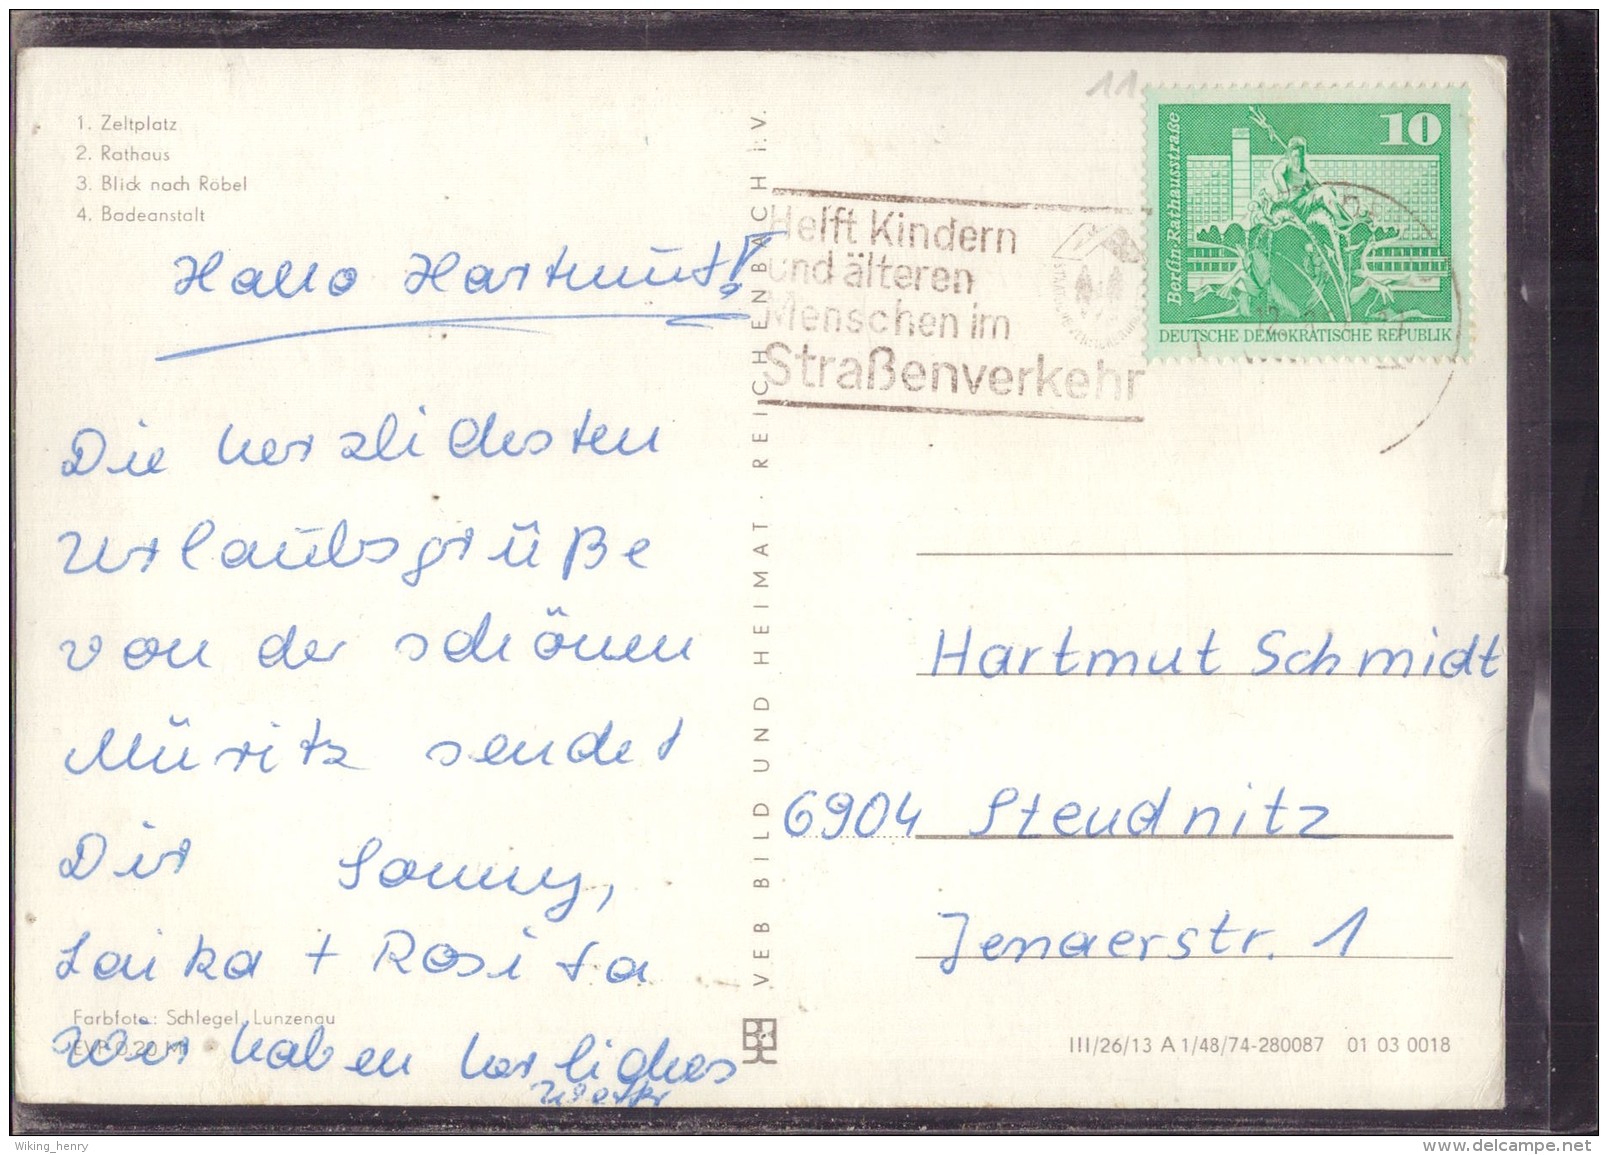 1. Zeltplatz
2. Rathaus
3. Blick nach Röbel
4. Badeanstalt
Hallo Hartmut!
Die herzlichsten
Urlaubsgrüße
von der schönen
Müritz sendet
Dir Sonny,
Laika + Rosita
Farbfoto: Schlegel, Lunzenau
EVP 0,20 M
Wir haben herliches
Wetter
VEB BILD UND HEIMAT · REICHENBACH i.V.
11
Helft Kindern
und älteren
Menschen im
Straßenverkehr
10
Berlin-Rathausstraße
DEUTSCHE DEMOKRATISCHE REPUBLIK
Hartmut Schmidt
6904 Steudnitz
Jenaerstr. 1
III/26/13 A 1/48/74-280087 01 03 0018
Wiking_henry
www.delcampe.net